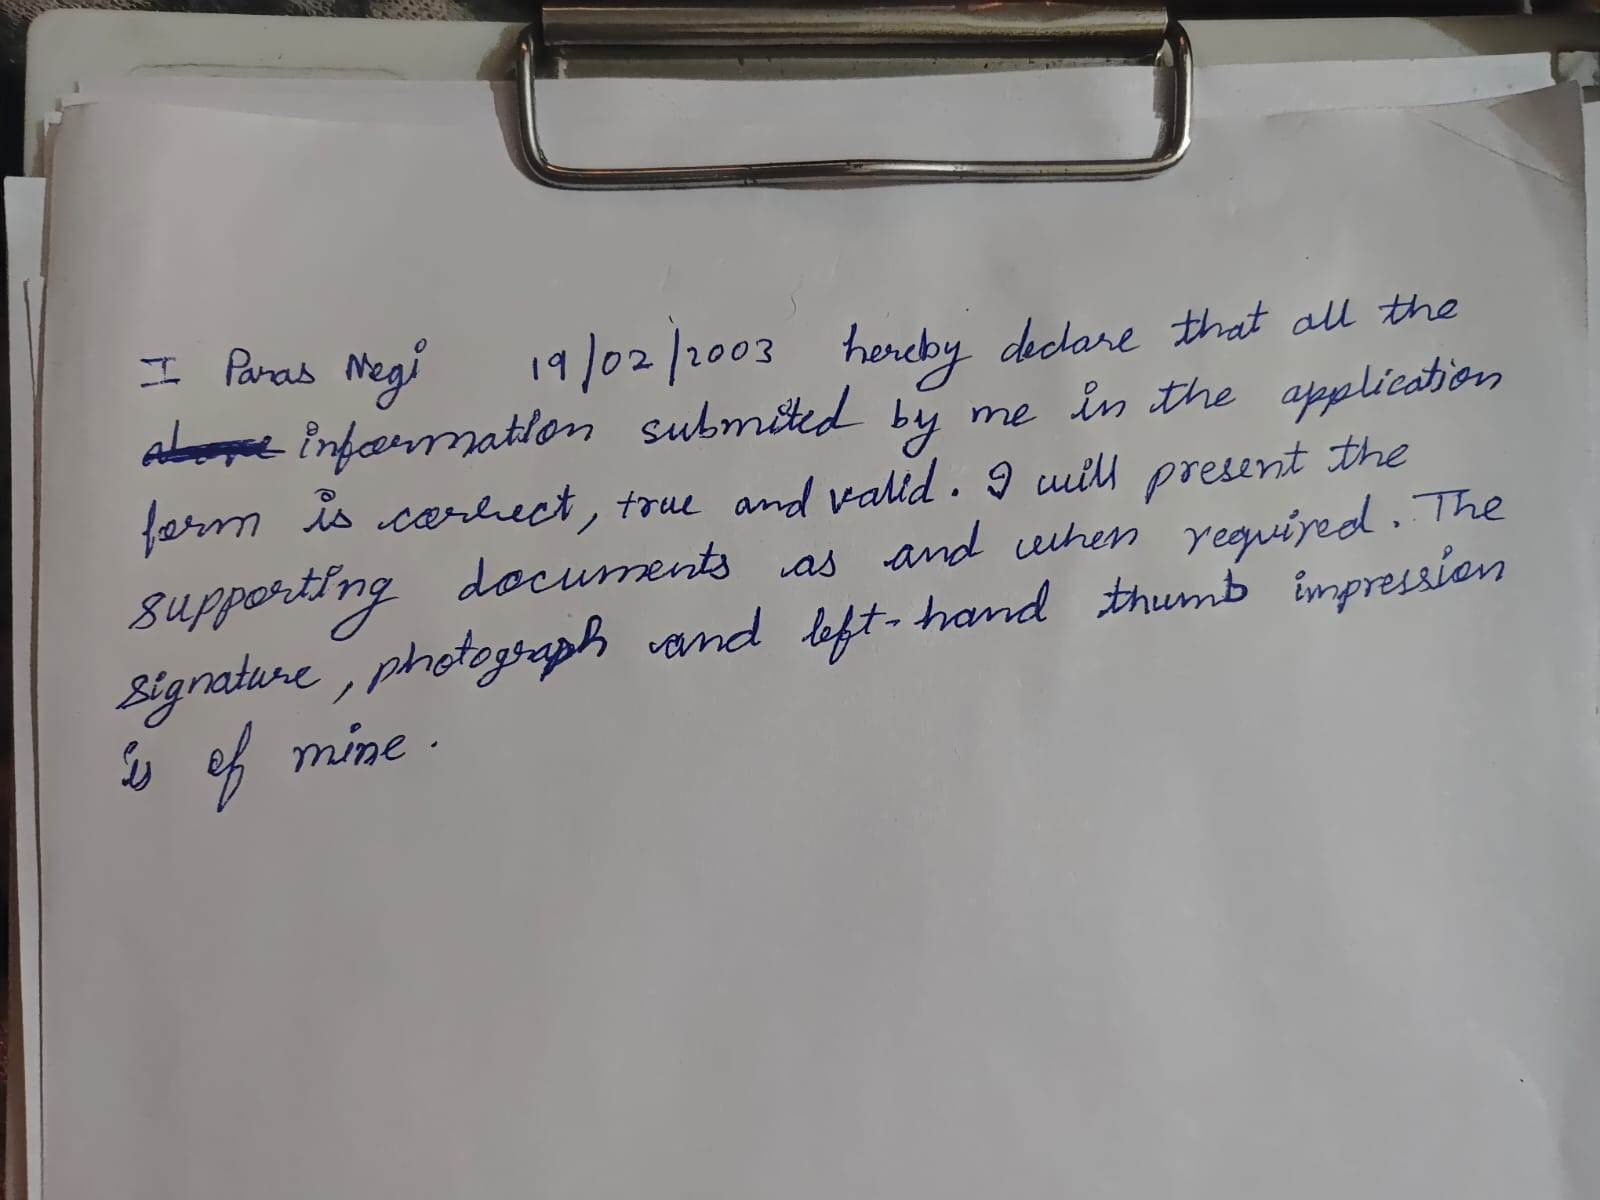 I Paras Negi 19/02/2003 hereby declare that all the
above information submited by me in the application
form is correct, true and valid. I will present the
supporting documents as and when required. The
signature, photograph and left-hand thumb impression
is of mine.